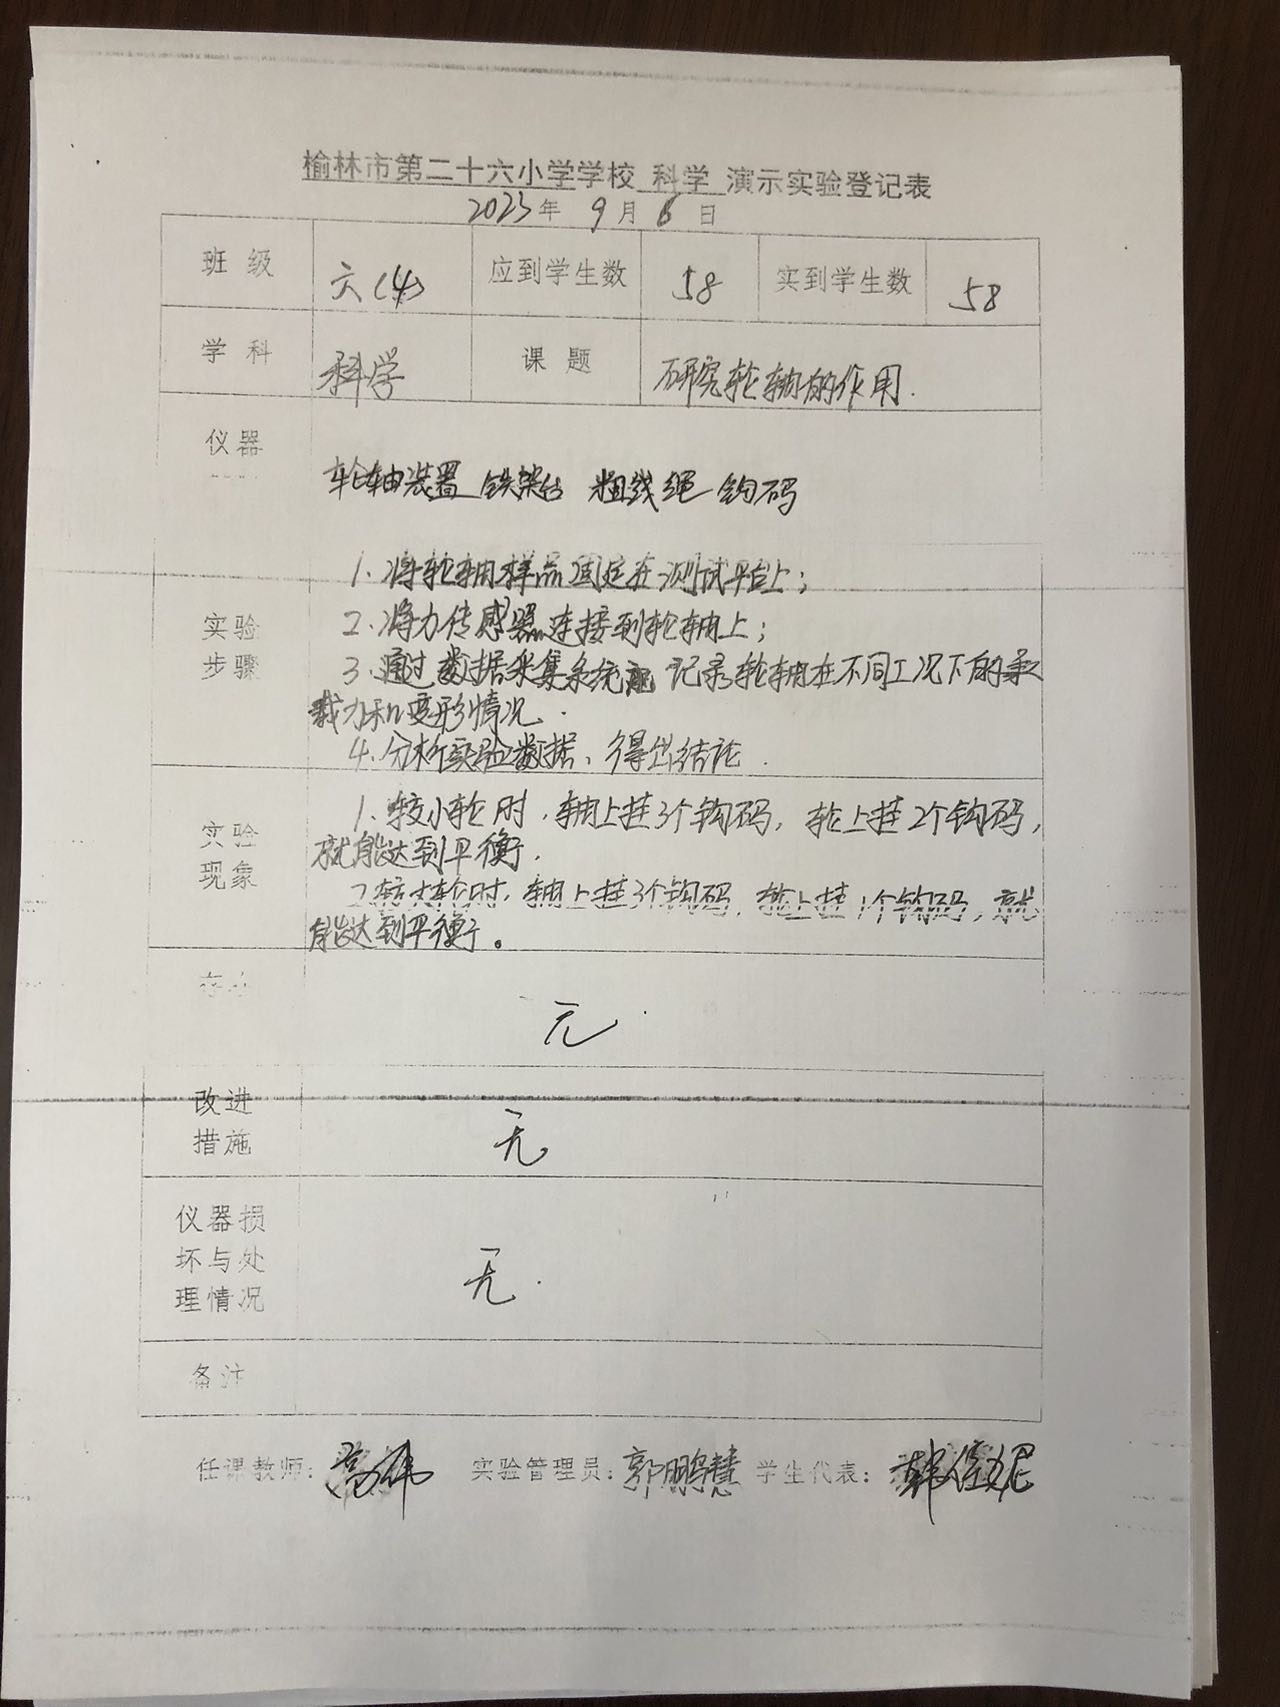 榆林市第二十六小学学校 科学 演示实验登记表
2023年 9月 6日
班 级 六(4) 应到学生数 58 实到学生数 58
学 科 科学 课 题 研究轮轴的作用.
仪器
轮轴装置 铁架台 粗线绳 钩码
1. 将轮轴样品固定在测试平台上;
实验 2. 将力传感器连接到轮轴上;
步骤 3. 通过数据采集系统 记录轮轴在不同工况下的承
载力和变形情况.
4. 分析实验数据、得出结论.
1. 较小轮时, 轴上挂3个钩码, 轮上挂2个钩码,
实验 就能达到平衡.
现象 2. 较大轮时, 轴上挂3个钩码, 轮上挂1个钩码, 就
能达到平衡。
无.
改进
措施 无
仪器损
坏与处 无.
理情况
备注
任课教师: 高伟 实验管理员: 郭鹏慧 学生代表: 韩佳妮